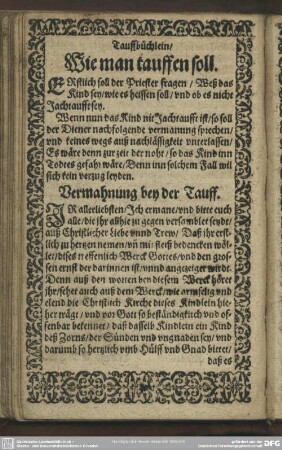 Tauffbüchlein/
Wie man tauffen soll.
ERstlich soll der Priester fragen/ Weß das
Kind sey/ wie es heissen soll/ vnd ob es nicht
Jachtaufft sey.
Wenn nun das Kind nit Jachtaufft ist/ so soll
der Diener nachfolgende vermanung sprechen/
vnd keines wegs auß nachlässigkeit vnterlassen/
Es wäre denn zur zeit der noht/ so das Kind inn
Todtes gefahr wäre/ Denn inn solchem Fall wil
sichs kein verzug leyden.
Vermahnung bey der Tauff.
IR allerliebsten/ Ich ermane/ vnd bitte euch
alle/ die ihr allhie zu gegen versamblet seyde/
auß Christlicher liebe vnnd Trew/ Daß ihr erst-
lich zu hertzen nemen/ vñ mit fleiß bedencken wöl-
let/ dises treffenlich Werck Gottes/ vnd den gros-
sen ernst der darinnen ist/ vnnd angezeiget wirdt.
Denn auß den worten bey diesem Werck höret
ihr/ sehet auch auß dem Werck/ wie armselig vnd
elend die Christlich Kirche dieses Kindlein hie-
her trägt/ vnd vor Gott so beständigklich vnd of-
fenbar bekennet/ daß dasselb Kindlein ein Kind
deß Zorns/ der Sünden vnd vngnaden sey/ vnd
darumb so hertzlich vmb Hülff vnd Gnad bittet/
daß es